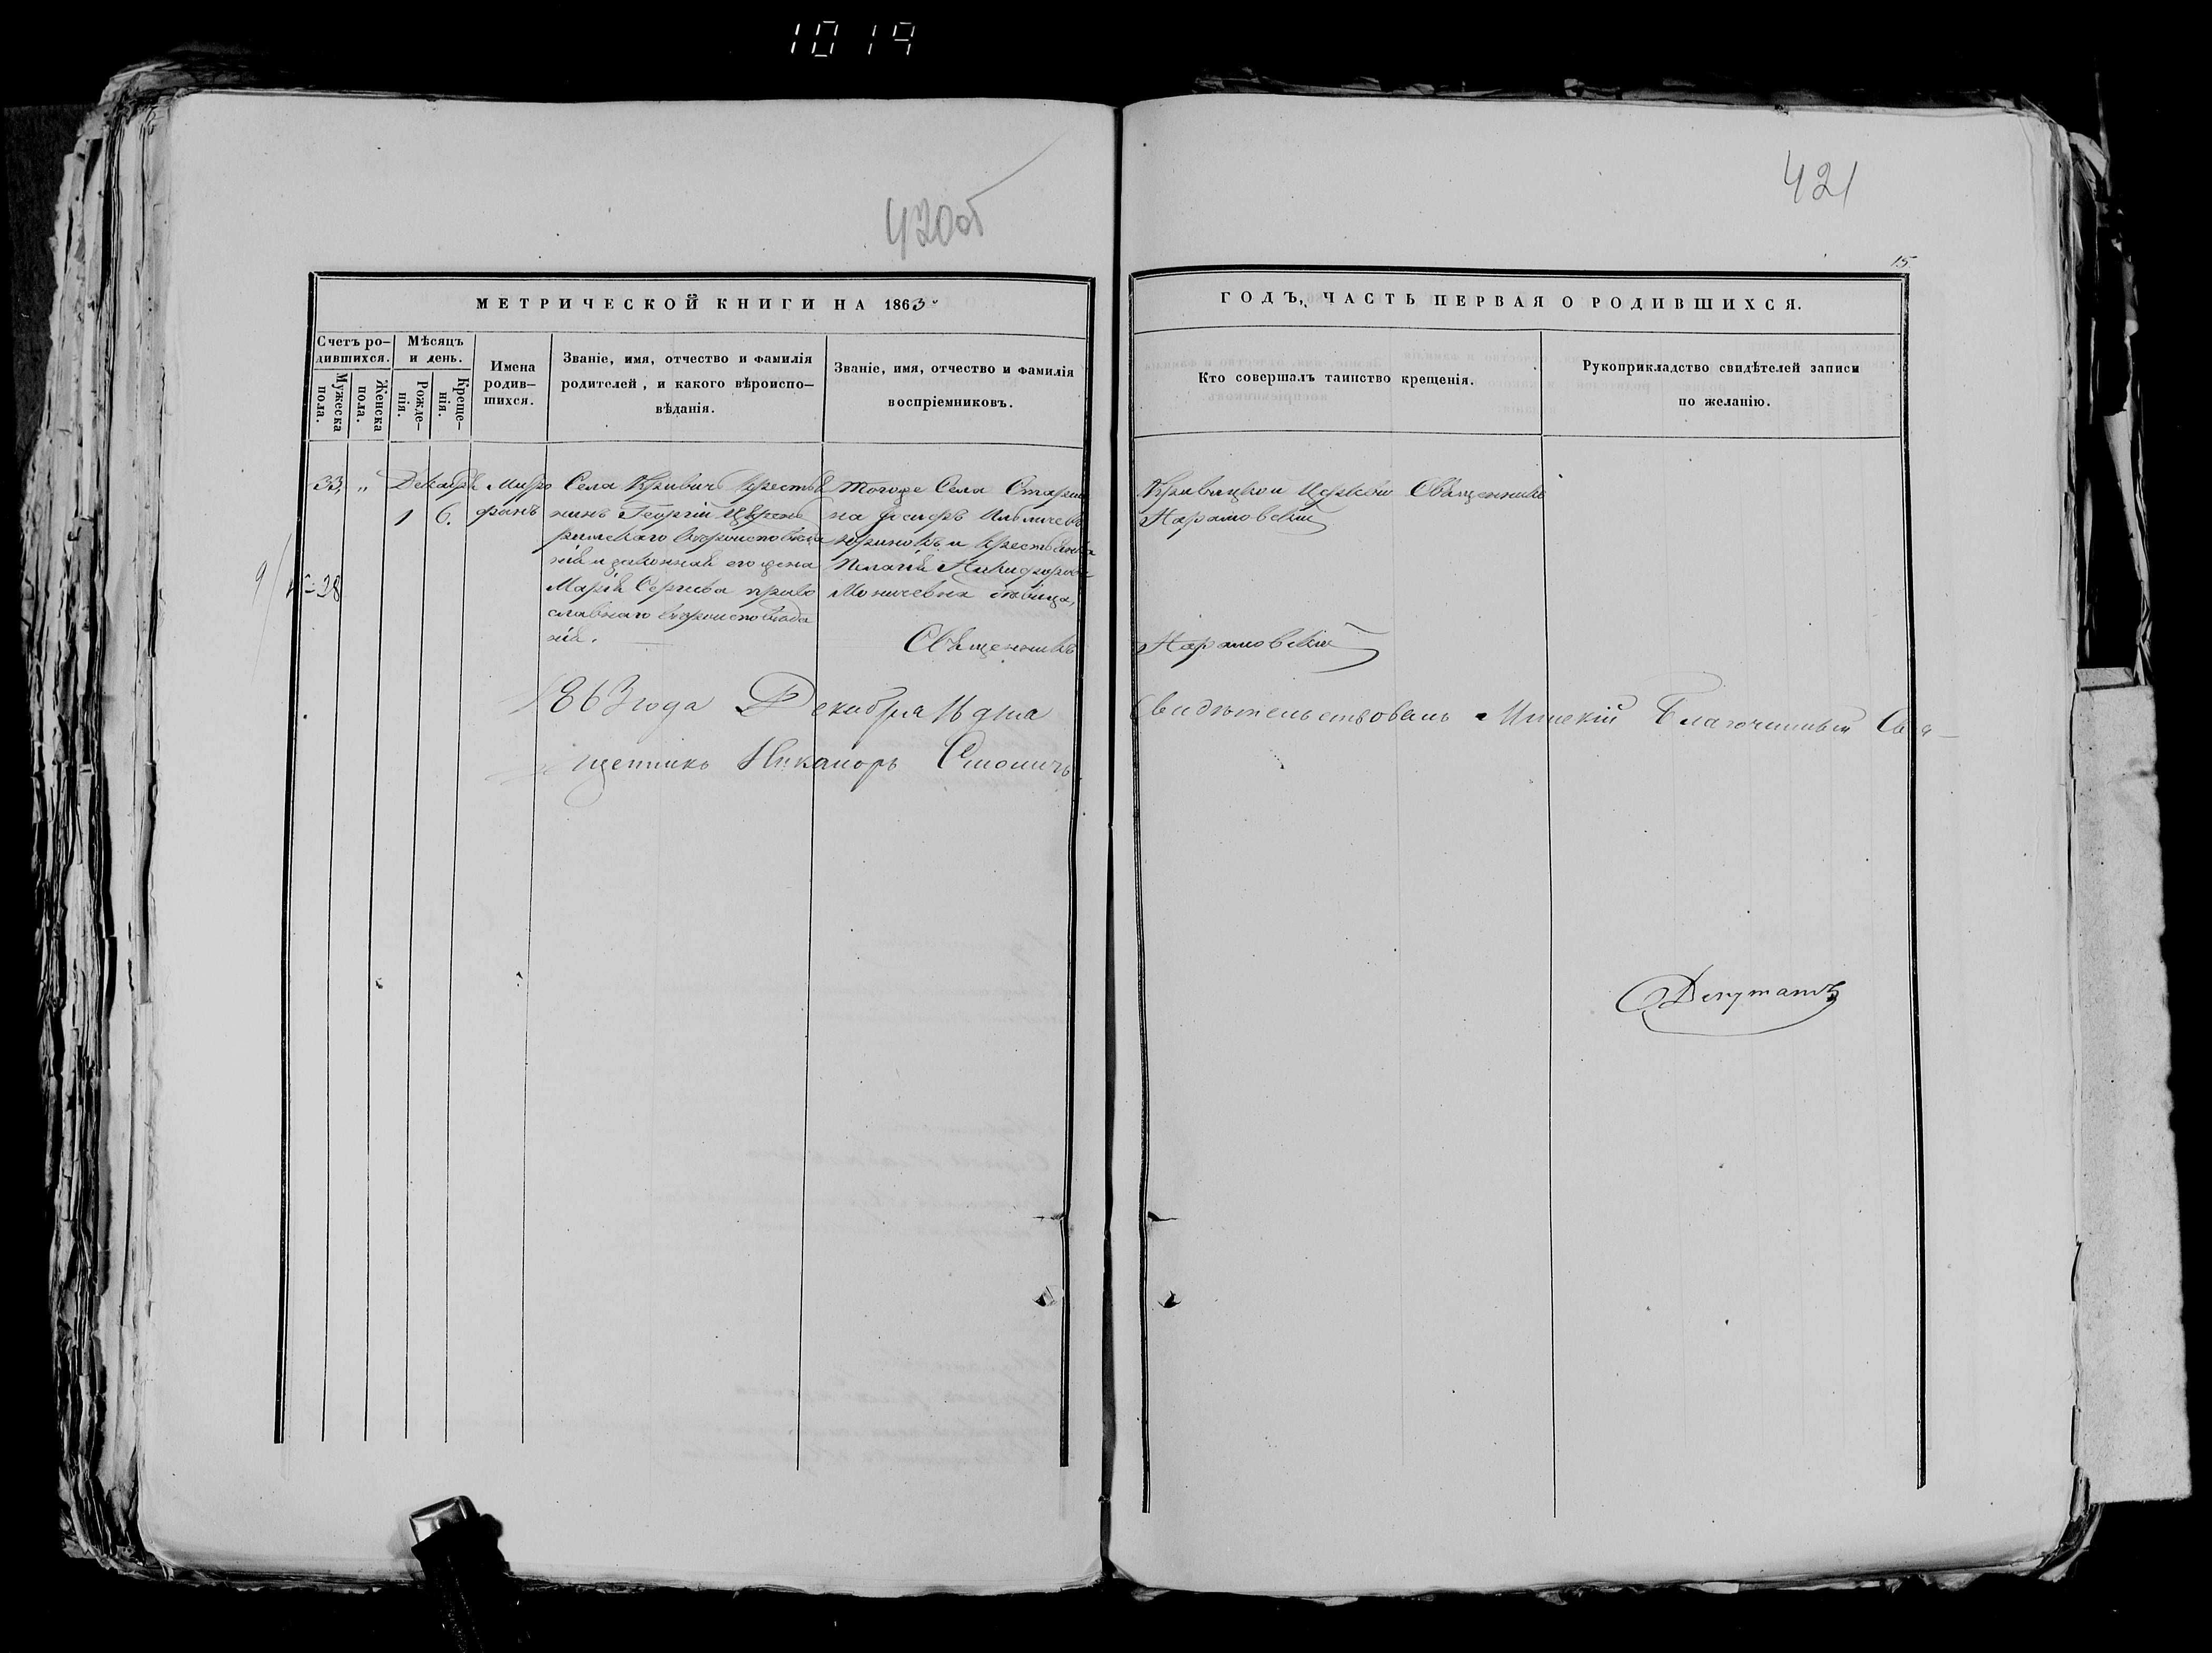 1019
420об
421
15
МЕТРИЧЕСКОЙ КНИГИ НА 1863й
ГОДЪ, ЧАСТЬ ПЕРВАЯ О РОДИВШИХСЯ.
Счетъ ро-
дившихся.
Мужеска
пола.
Женска
пола.
Мѣсяцъ
и день.
Рожде-
нія.
Креще-
нія.
Имена
родив-
шихся.
Званіе, имя, отчество и фамилія
родителей, и какого вѣроиспо-
вѣданія.
Званіе, имя, отчество и фамилія
воспріемниковъ.
Кто совершалъ таинство крещенія.
Рукоприкладство свидѣтелей записи
по желанію.
33. „ Декабрь
1 6.
Митро
фанъ
Села Кривичъ крестья
нинъ Георгій
римскаго вѣроисповѣда
нія и законная его жена
Марія Сергіева право
славнаго вѣроисповѣда
нія.
тогоже Села
на Іосифъ
и крестьянка
Пелагія Никифорова
девица,
Священникъ
Кривицкой Церкви Священникъ
Нарановскій
Нарановскій
1863 года Декабря 16 дня
Свидѣтельствовалъ Минскій Благочинный Свя-
щенникъ Никаноръ Смоличъ
Депутатъ